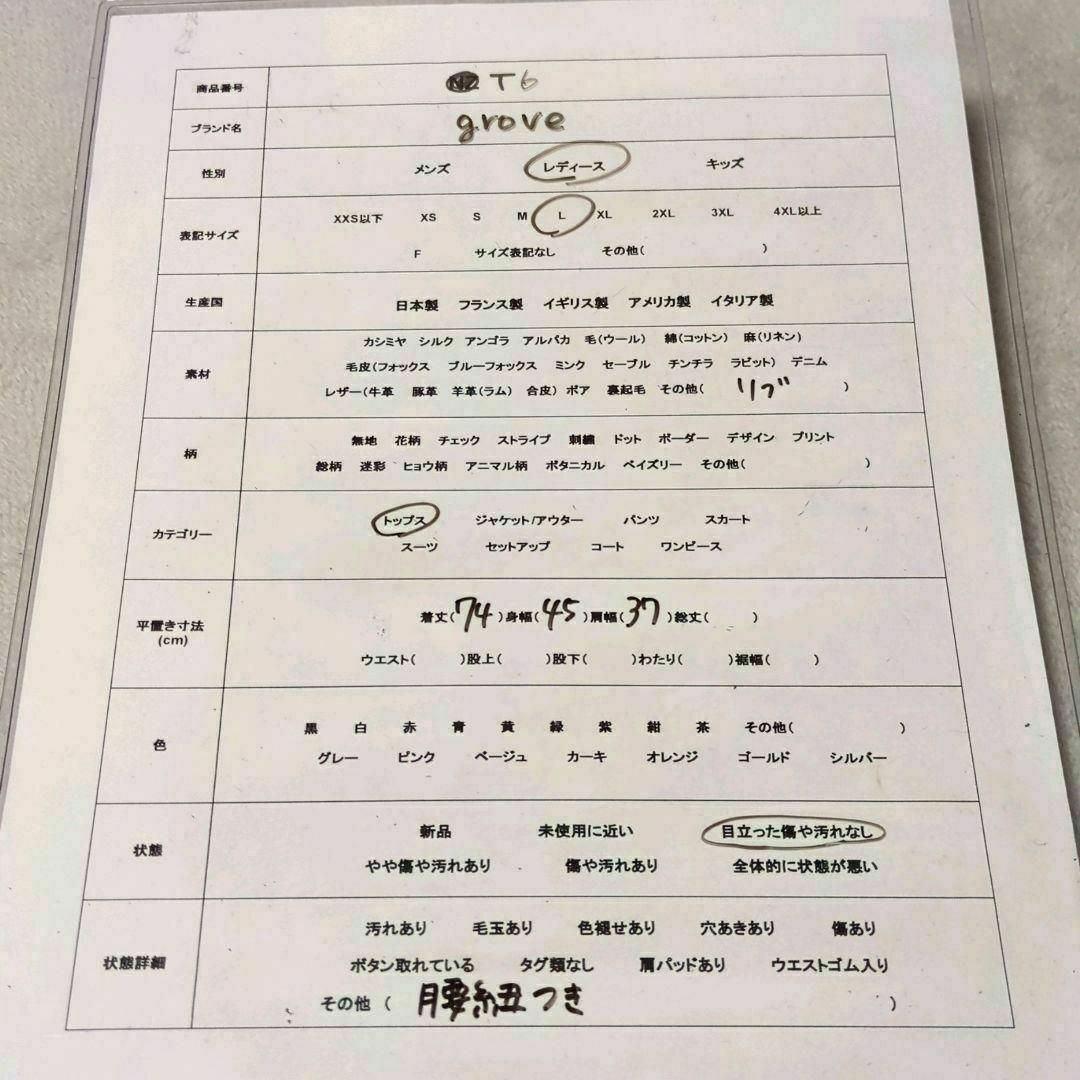 商品番号 T6
ブランド名 grove
性別 メンズ レディース キッズ
XXS以下 XS S M L XL 2XL 3XL 4XL以上
表記サイズ
F サイズ表記なし その他( )
生産国 日本製 フランス製 イギリス製 アメリカ製 イタリア製
カシミヤ シルク アンゴラ アルパカ 毛(ウール) 綿(コットン) 麻(リネン)
素材 毛皮(フォックス ブルーフォックス ミンク セーブル チンチラ ラビット) デニム
レザー(牛革 豚革 羊革(ラム) 合皮) ボア 裏起毛 その他( リブ )
無地 花柄 チェック ストライプ 刺繍 ドット ボーダー デザイン プリント
柄
総柄 迷彩 ヒョウ柄 アニマル柄 ボタニカル ペイズリー その他( )
トップス ジャケット/アウター パンツ スカート
カテゴリー
スーツ セットアップ コート ワンピース
平置き寸法 着丈(74)身幅(45)肩幅(37)総丈( )
(cm)
ウエスト( )股上( )股下( )わたり( )裾幅( )
黒 白 赤 青 黄 緑 紫 紺 茶 その他( )
色
グレー ピンク ベージュ カーキ オレンジ ゴールド シルバー
新品 未使用に近い 目立った傷や汚れなし
状態
やや傷や汚れあり 傷や汚れあり 全体的に状態が悪い
汚れあり 毛玉あり 色褪せあり 穴あきあり 傷あり
状態詳細 ボタン取れている タグ類なし 肩パッドあり ウエストゴム入り
その他 ( 腰紐つき )